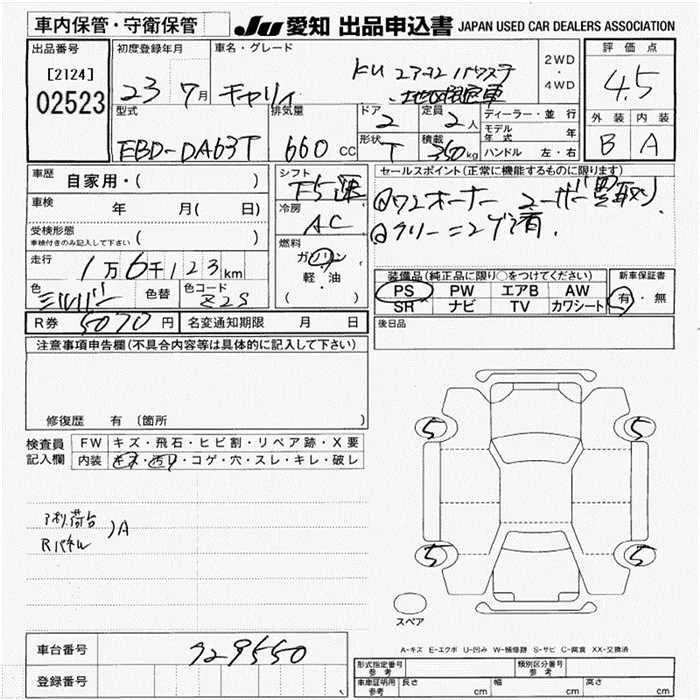 車内保管・守衛保管
JU 愛知 出品申込書 JAPAN USED CAR DEALERS ASSOCIATION
出品番号
[2124]
02523
初度登録年月
23 7月
車名・グレード
キャリィ
KU エアコン パワステ
2WD
・
4WD
評価点
4.5
外装 内装
B A
型式
EBD-DA63T
排気量
660 cc
ドア
2
定員
2人
形状
T
積載
350kg
ディーラー・並行
モデル年式 年
ハンドル 左・右
車歴
自家用・( )
車検
年 月( 日)
受検形態
車検付きのみ記入して下さい ( )
走行
1万6千123km
色
シルバー
色替
色コード
Z2S
シフト
F5速
冷房
AC
燃料
ガソリン
軽・油
( )
セールスポイント(正常に機能するものに限ります)
ワンオーナー ユーザー買取り
クリーニング済
装備品(純正品に限り○をつけてください)
PS PW エアB AW
SR ナビ TV カワシート
新車保証書
有・無
R券 5070円
名変通知期限 月 日
後日品
注意事項申告欄(不具合内容等は具体的に記入して下さい)
修復歴 有 (箇所 )
検査員
記入欄
FW キズ・飛石・ヒビ割・リペア跡・X要
内装 ・コゲ・穴・スレ・キレ・破レ
荷台
Rパネル
A
5
5
5
5
スペア
A-キズ E-エクボ U-凹み W-補修跡 S-サビ C-腐食 XX-交換済
車台番号
729550
登録番号
形式指定番号
参考
類別区分番号
参考
車庫証明用
参考
長さ cm 幅 cm 高さ cm